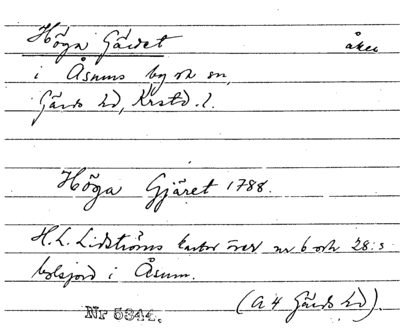 Höga Gärdet åker
i Åsums by och sn,
Gärds hd, Krstd. l.
Höga Gjäret 1788.
H. L. Lidströms kartor över nr 6 och 28:s
bolsjord i Åsum.
(A 4 Gärds hd).
Nr 5844.